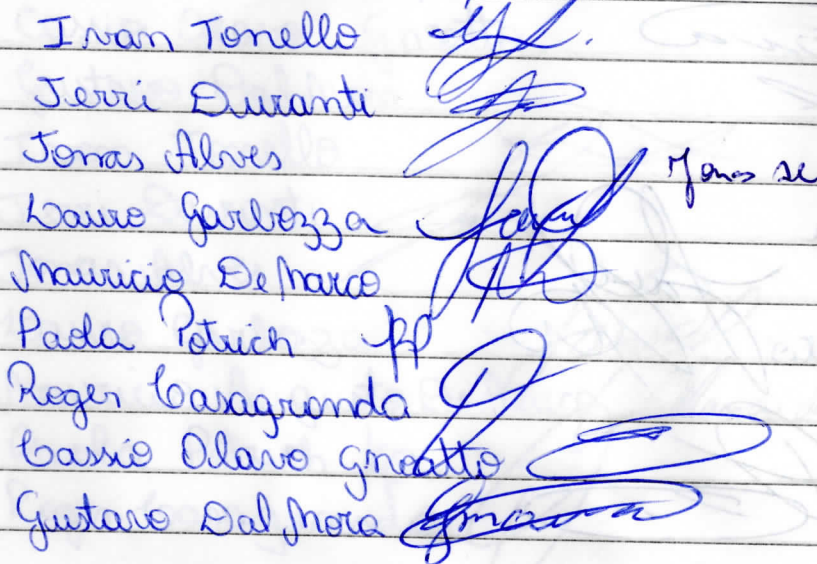 Ivan Tonello
Jerri Duranti
Jonas Alves Jonas
Lauro Garbozza
Mauricio De Marco
Paola Potrich PP
Roger Casagranda
Cassio Olavo Gnoatto
Gustavo Dal Mora